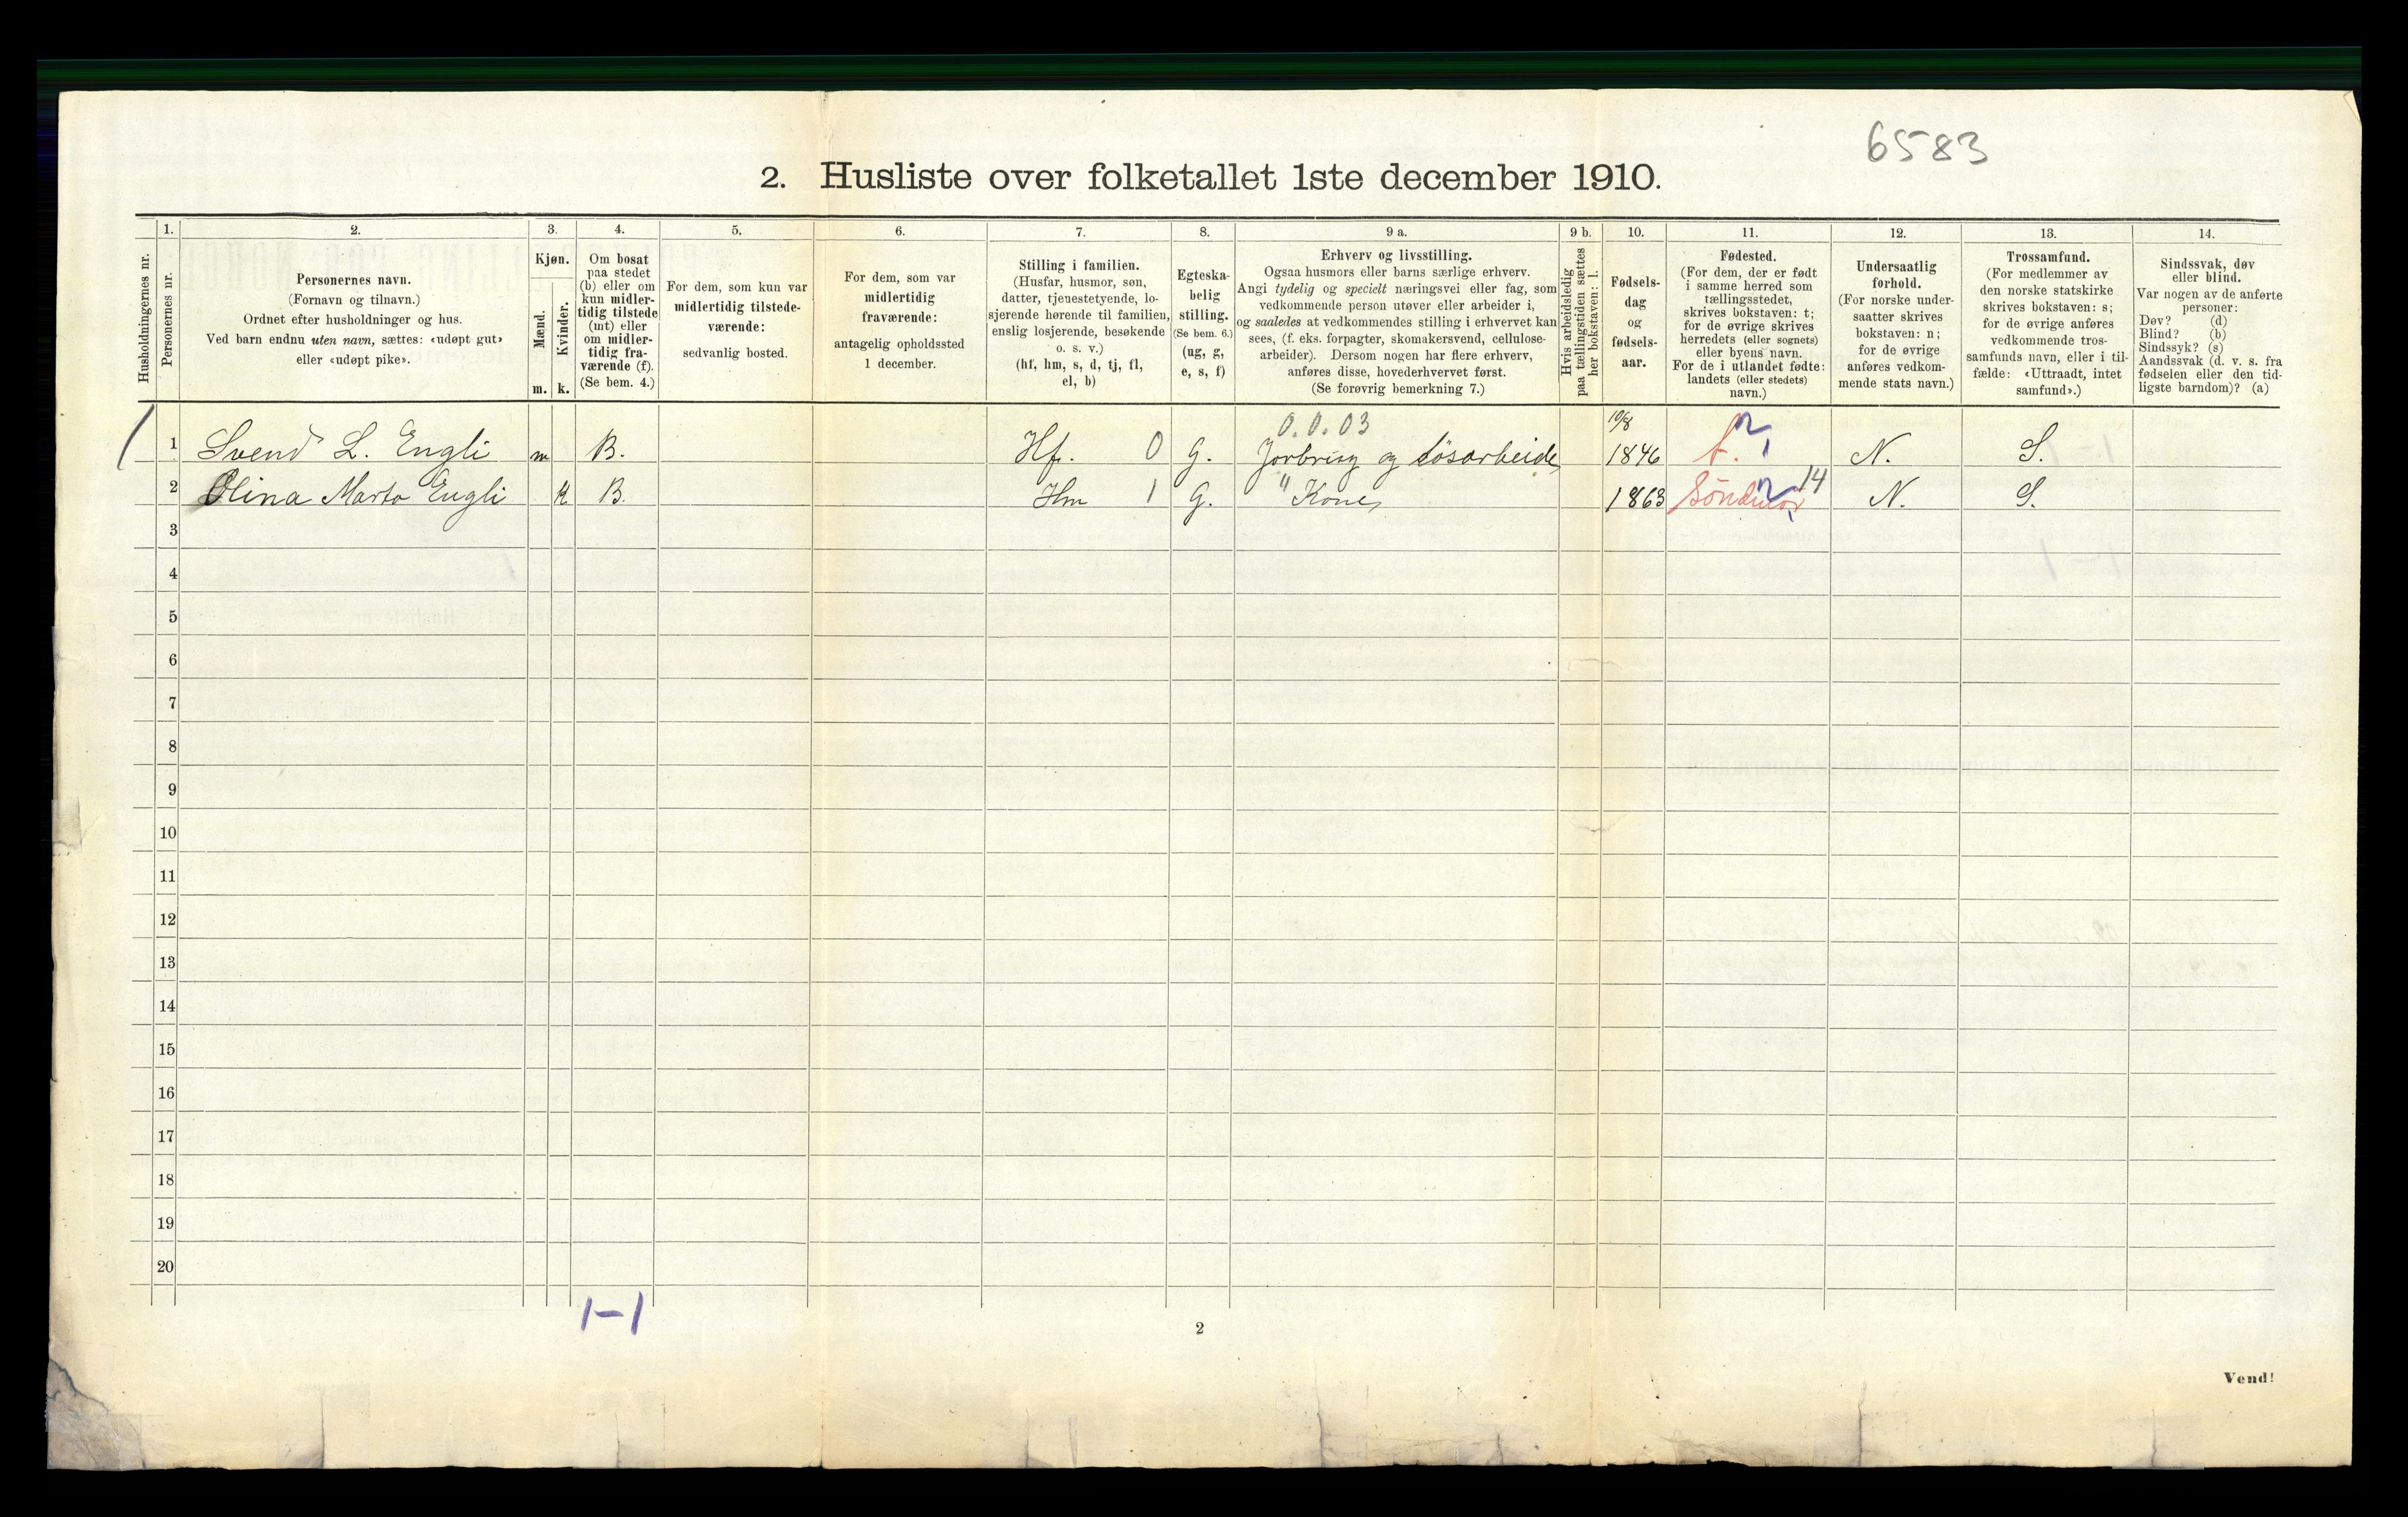 6583
2. Husliste over folketallet 1ste december 1910.
Husholdningernes nr.
1.
Personernes nr.
2.
Personernes navn.
(Fornavn og tilnavn.)
Ordnet efter husholdninger og hus.
Ved barn endnu uten navn, sættes: «udøpt gut»
eller «udøpt pike».
3.
Kjøn.
Mænd.
Kvinder.
m. k.
4.
Om bosat
paa stedet
(b) eller om
kun midler-
tidig tilstede
(mt) eller
om midler-
tidig fra-
værende (f).
(Se bem. 4.)
5.
For dem, som kun var
midlertidig tilstede-
værende:
sedvanlig bosted.
6.
For dem, som var
midlertidig
fraværende:
antagelig opholdssted
1 december.
7.
Stilling i familien.
(Husfar, husmor, søn,
datter, tjenestetyende, lo-
sjerende hørende til familien,
enslig losjerende, besøkende
o. s. v.)
(hf, hm, s, d, tj, fl,
el, b)
8.
Egteska-
belig
stilling.
(Se bem. 6.)
(ug, g,
e, s, f)
9 a.
Erhverv og livsstilling.
Ogsaa husmors eller barns særlige erhverv.
Angi tydelig og specielt næringsvei eller fag, som
vedkommende person utøver eller arbeider i,
og saaledes at vedkommendes stilling i erhvervet kan
sees, (f. eks. forpagter, skomakersvend, cellulose-
arbeider). Dersom nogen har flere erhverv,
anføres disse, hovederhvervet først.
(Se forøvrig bemerkning 7.)
9 b.
Hvis arbeidsledig
paa tællingstiden sættes
her bokstaven: l.
10.
Fødsels-
dag
og
fødsels-
aar.
11.
Fødested.
(For dem, der er født
i samme herred som
tællingsstedet,
skrives bokstaven: t;
for de øvrige skrives
herredets (eller sognets)
eller byens navn.
For de i utlandet fødte:
landets (eller stedets)
navn.)
12.
Undersaatlig
forhold.
(For norske under-
saatter skrives
bokstaven: n;
for de øvrige
anføres vedkom-
mende stats navn.)
13.
Trossamfund.
(For medlemmer av
den norske statskirke
skrives bokstaven: s;
for de øvrige anføres
vedkommende tros-
samfunds navn, eller i til-
fælde: «Uttraadt, intet
samfund».)
14.
Sindssvak, døv
eller blind.
Var nogen av de anførte
personer:
Døv? (d)
Blind? (b)
Sindssyk? (s)
Aandssvak (d. v. s. fra
fødselen eller den tid-
ligste barndom)? (a)
0.0.03 10/8
1 Svend L. Engli m B. Hf. 0 G. Jorbrug og løsarbeide 1846 t. N. S.
2 Olina Marta Engli k B. Hm 1 G. " Kone 1863 Søndmør 14 N. S.
3
4
5
6
7
8
9
10
11
12
13
14
15
16
17
18
19
20
1-1
2
Vend!